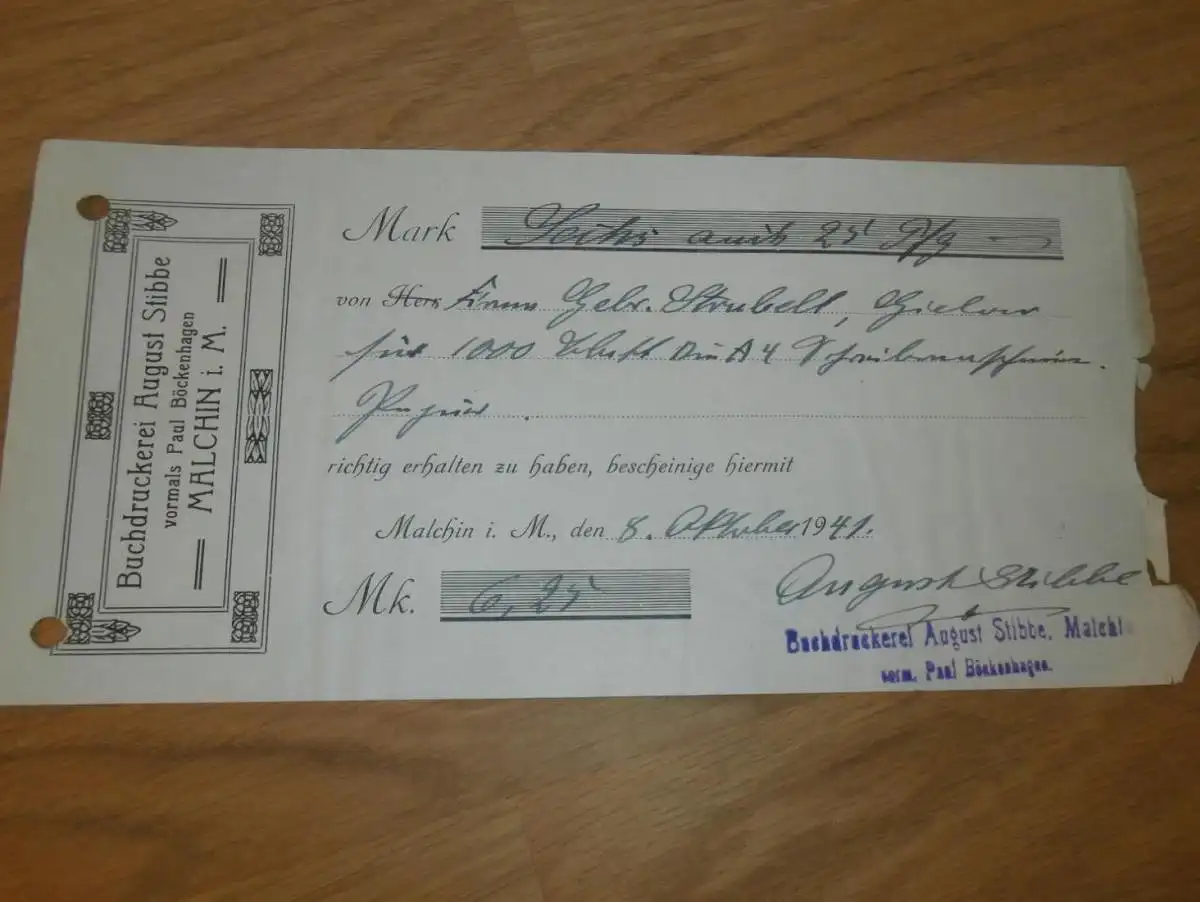 Buchdruckerei August Stibbe
vormals Paul Böckenhagen
MALCHIN i. M.
Mark Sechs auch 25 Pfg
von Herr Firma Gebr. Strubelt, Gielow
für 1000 Blatt Din A 4 Schreibmaschinen
Papier.
richtig erhalten zu haben, bescheinige hiermit
Malchin i. M., den 8. Oktober 1941.
Mk. 6,25
August Stibbe
Buchdruckerei August Stibbe, Malchin
vorm. Paul Böckenhagen.